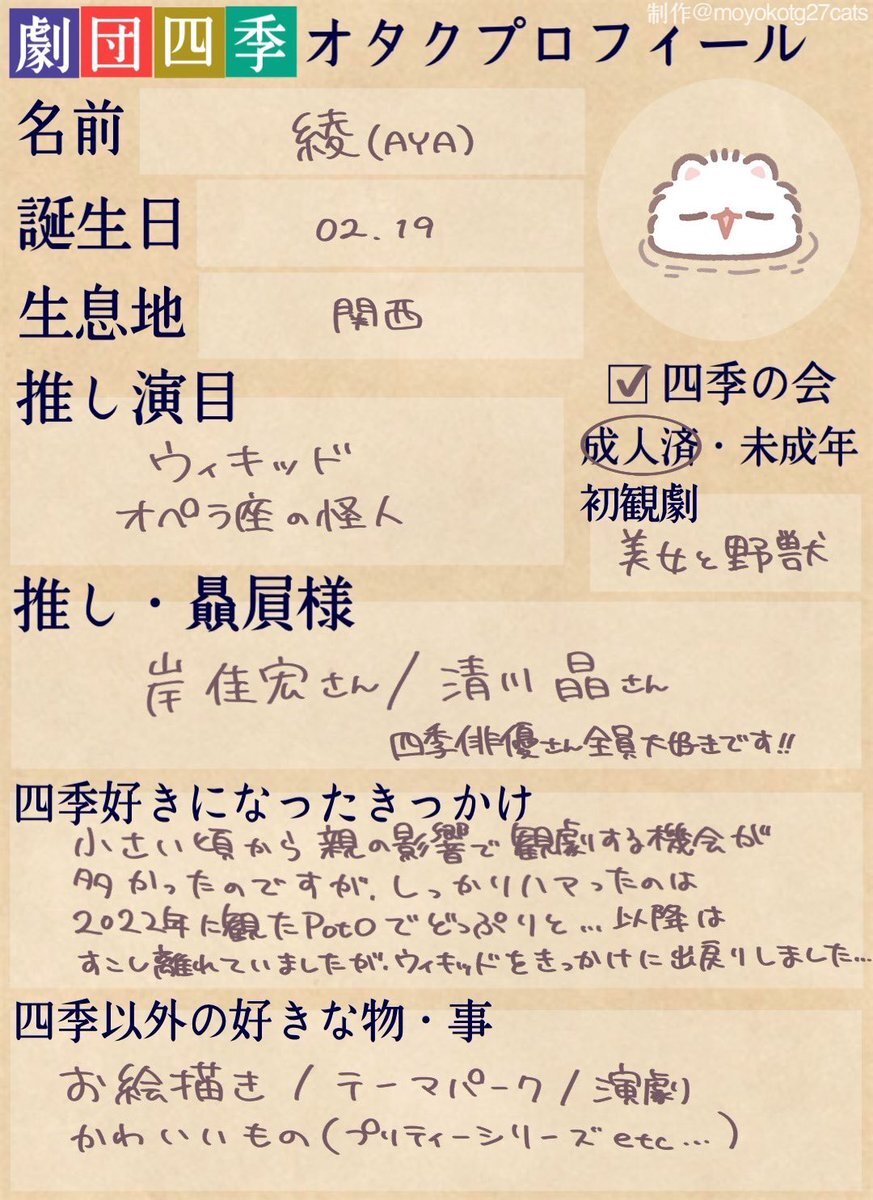 制作@moyokotg27cats
劇団四季オタクプロフィール
名前
綾(AYA)
誕生日
02.19
生息地
関西
推し演目
ウィキッド
オペラ座の怪人
☑四季の会
成人済・未成年
初観劇
美女と野獣
推し・贔屓様
岸佳宏さん/清川晶さん
四季俳優さん全員大好きです!!
四季好きになったきっかけ
小さい頃から親の影響で観劇する機会が
多かったのですが、しっかりハマったのは
2022年に観たPotOでどっぷりと…以降は
すこし離れていましたが、ウィキッドをきっかけに出戻りしました…
四季以外の好きな物・事
お絵描き/テーマパーク/演劇
かわいいもの(プリティーシリーズetc…)